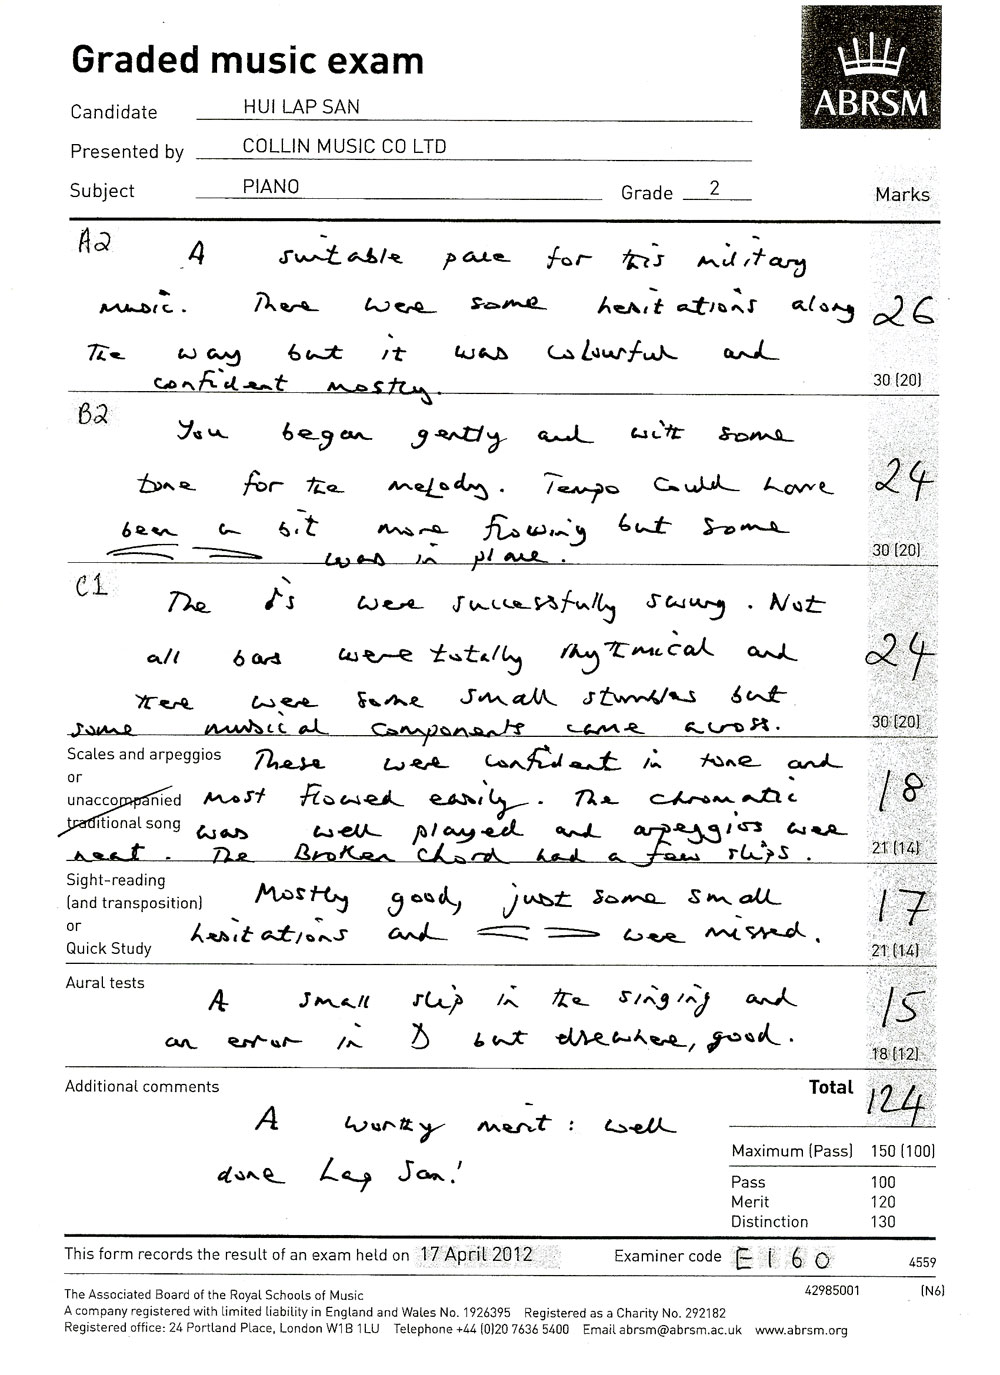 Graded music exam
ABRSM
Candidate HUI LAP SAN
Presented by COLLIN MUSIC CO LTD
Subject PIANO Grade 2 Marks
A2 A suitable pace for this military
music. There were some hesitations along 26
the way but it was colourful and
confident mostly. 30 (20)
B2 You began gently and with some
tone for the melody. Tempo could have 24
been a bit more flowing but some
was in place. 30 (20)
C1 The ♪s were successfully swung. Not
all bars were totally rhythmical and 24
there were some small stumbles but
some musical components came across. 30 (20)
Scales and arpeggios These were confident in tone and
or
unaccompanied most flowed easily. The chromatic 18
traditional song was well played and arpeggios were
neat. The Broken Chord had a few slips. 21 (14)
Sight-reading
(and transposition) Mostly good, just some small 17
or
Quick Study hesitations and were missed. 21 (14)
Aural tests
A small slip in the singing and 15
an error in D but elsewhere, good. 18 (12)
Additional comments Total 124
A worthy merit: well
done Lap San!
Maximum (Pass) 150 (100)
Pass 100
Merit 120
Distinction 130
This form records the result of an exam held on 17 April 2012 Examiner code E160 4559
42985001 (N6)
The Associated Board of the Royal Schools of Music
A company registered with limited liability in England and Wales No. 1926395 Registered as a Charity No. 292182
Registered office: 24 Portland Place, London W1B 1LU Telephone +44 (0)20 7636 5400 Email abrsm@abrsm.ac.uk www.abrsm.org